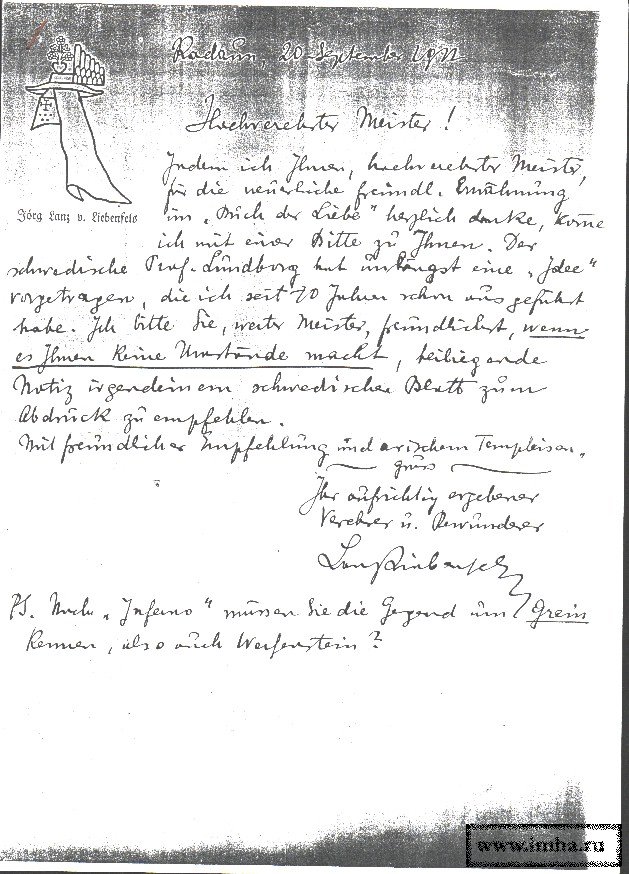 Rodaun, 20 September 1911
Hochverehrter Meister!
Jörg Lanz v. Liebenfels
Indem ich Ihnen, hochverehrter Meister,
für die neuerliche freundl. Erwähnung
im „Buch der Liebe“ herzlich danke, komme
ich mit einer Bitte zu Ihnen. Der
schwedische Prof. Lundborg hat unlängst eine „Idee“
vorgetragen, die ich seit 10 Jahren schon ausgeführt
habe. Ich bitte Sie, Meister, freundlichst, wenn
es Ihnen keine Umstände macht, beiliegende
Notiz irgendeinem schwedischen Blatt zum
Abdruck zu empfehlen.
Mit freundlicher Empfehlung und arischem Templeisen-
gruss
Ihr aufrichtig ergebener
Verehrer u. Bewunderer
Lanz Liebenfels
PS. Nach „Inferno“ müssen Sie die Gegend um Grein
kennen, also auch Werfenstein?
www.imha.ru